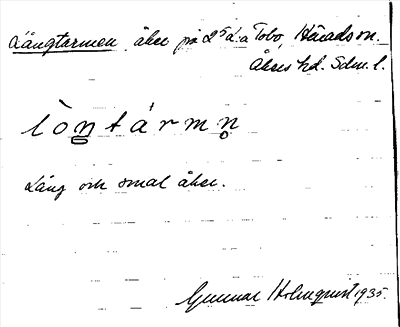 Långtarmen åker på 2⁵ d:a Tobo, Härads sn.
Åkers hd. Sdm. l.
lòntármn
Lång och smal åker.
Gunnar Holmquist 1935.